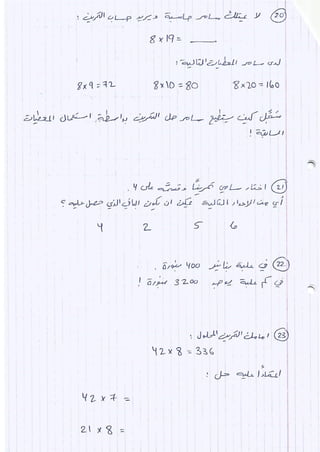 20) لا يمتلك سامر حاسبة ويريد حساب التمرين :
8 x 19 = ____
لدى سامر المعطيات التالية :
8x9 = 72   8x10 = 80   8x20 = 160
سجّل كيف يستطيع سامر حل التمرين بواسطة استعمال المعطيات
السابقة !
21) اختار سامي تمرينًا وقسمه على 4 .
أي من الأعداد التالية يمكن ان يكون الباقي الذي حصل عليه ؟
4   2   5   6
22) في علبة بنانير 400 بنورة .
في كم علبة يوجد 3200 بنورة !
23) امامك التمرين المحلول :
42 x 8 = 336
اعتمادًا عليه حل :
42 x 7 =
21 x 8 =